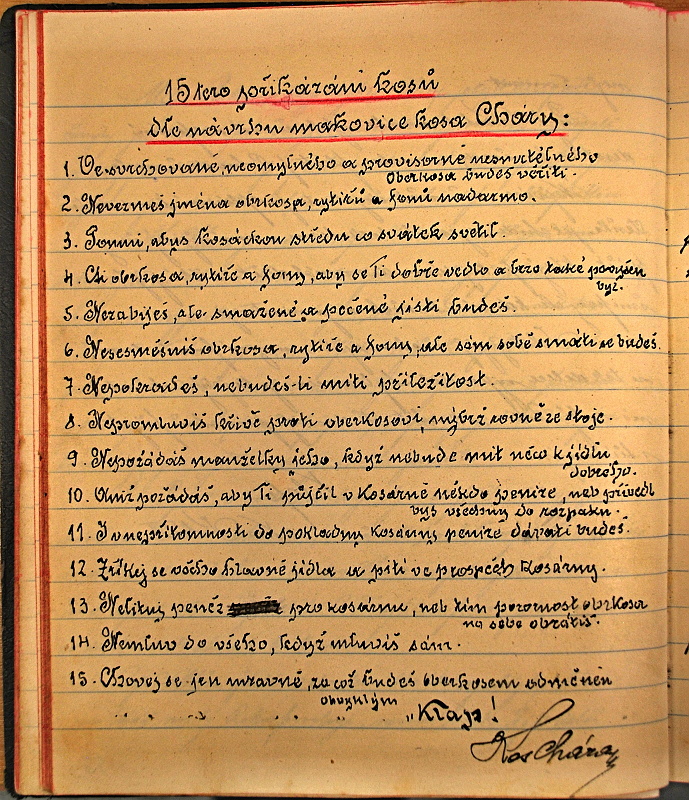 15tero přikázání kosů
dle návrhu makovice kosa Cháry:
1. Ve svrchované, neomylného a provisorně nesmrtelného
Oberkosa budeš věřiti.
2. Nevezmeš jména obrkosa, rytířů a žonů nadarmo.
3. Pomni, abys kosáckou středu co svátek světil.
4. Cti obrkosa, rytíře a žony, aby se Ti dobře vedlo a brzo také povýšen
byl.
5. Nezabiješ, ale smažené a pečené jísti budeš.
6. Nesesměšníš obrkosa, rytíře a žony, ale sám sobě smáti se budeš.
7. Nepokradeš, nebudeš-li míti příležitost.
8. Nepromluvíš křivě proti oberkosovi, nýbrž rovně ze stoje.
9. Nepožádáš manželky jeho, když nebude mít něco k jídlu
dobrého.
10. Aniž požádáš, aby Ti půjčil v Kosárně někdo peníze, neb přivedl
bys všechny do rozpaku.
11. I v nepřítomnosti do pokladny kosárny peníze dávati budeš.
12. Zříkej se všeho hlavně jídla a pití ve prospěch Kosárny.
13. Nelituj peněz pro kosárnu, neb tím pozornost obrkosa
na sebe obrátíš.
14. Nemluv do všeho, když mluvíš sám.
15. Chovej se jen mravně, za což budeš oberkosem odměněn
obvyklým
„Klap!
Kos Chára